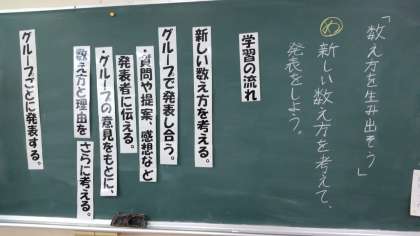 「数え方を生み出そう」
め 新しい数え方を考えて、
発表をしよう。
学習の流れ
新しい数え方を考える。
グループで発表し合う。
・質問や提案、感想など
発表者に伝える。
・グループの意見をもとに、
数え方と理由を
さらに考える。
グループごとに発表する。